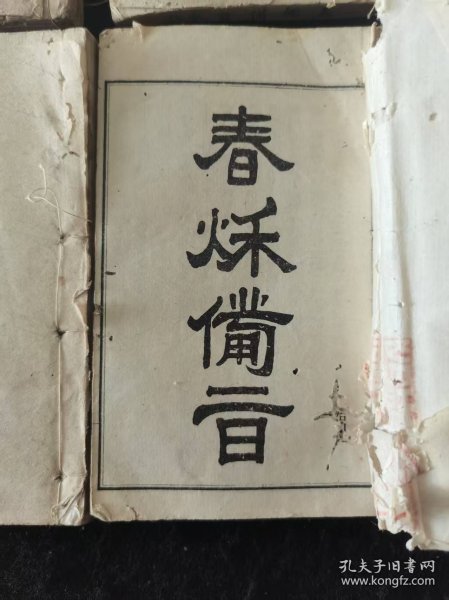 春秌備旨
孔夫子旧书网
www.kongfz.com